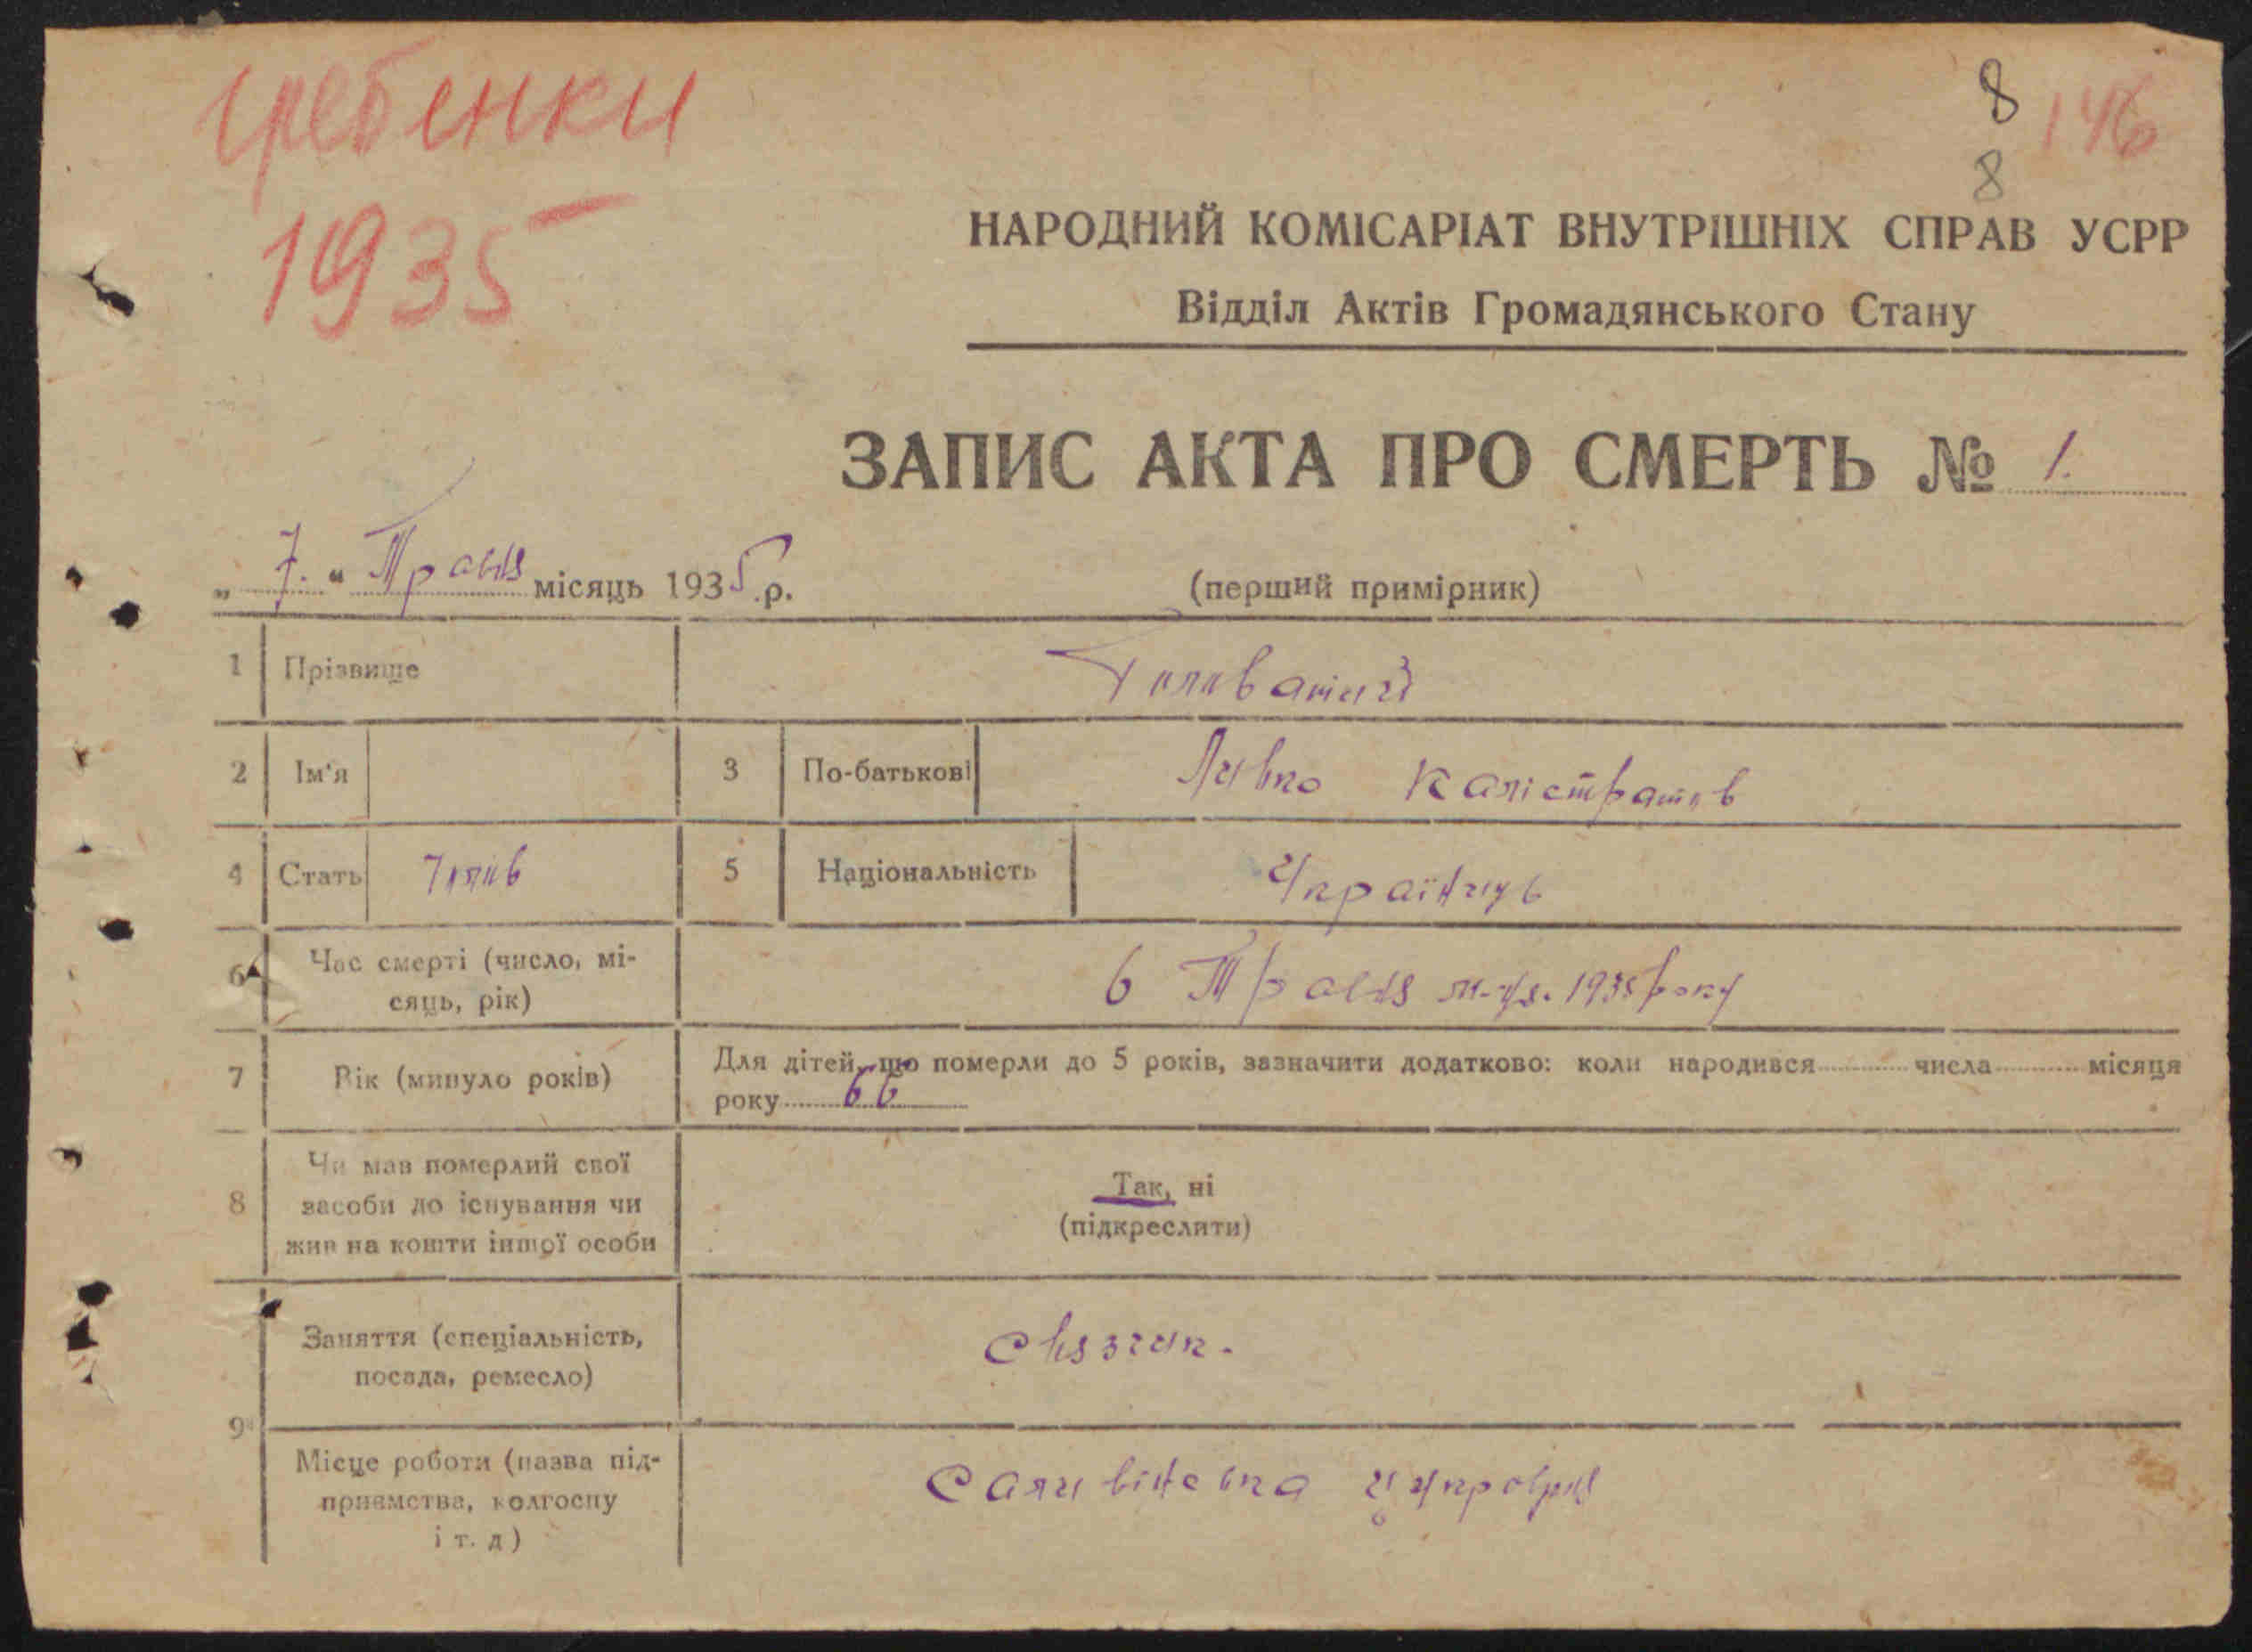 Гребенки
1935
8 146
8
НАРОДНИЙ КОМІСАРІАТ ВНУТРІШНІХ СПРАВ УСРР
Відділ Актів Громадянського Стану
ЗАПИС АКТА ПРО СМЕРТЬ № 1.
„ 7. “ Травня місяць 1935 .р.
(перший примірник)
1 Прізвище Головатий
2 Ім'я 3 По-батькові Левко Калістратов
4 Стать Чолов 5 Національність Українець
6 Час смерті (число, мі-
сяць, рік) 6 Травня м-ця. 1935 року
7 Вік (минуло років) Для дітей, що померли до 5 років, зазначити додатково: коли народився числа місяця
року 66
8 Чи мав померлий свої
засоби до існування чи
жив на кошти іншої особи
Так, ні
(підкреслити)
9 Заняття (спеціальність,
посада, ремесло)
Місце роботи (назва під-
приємства, колгоспу
і т. д)